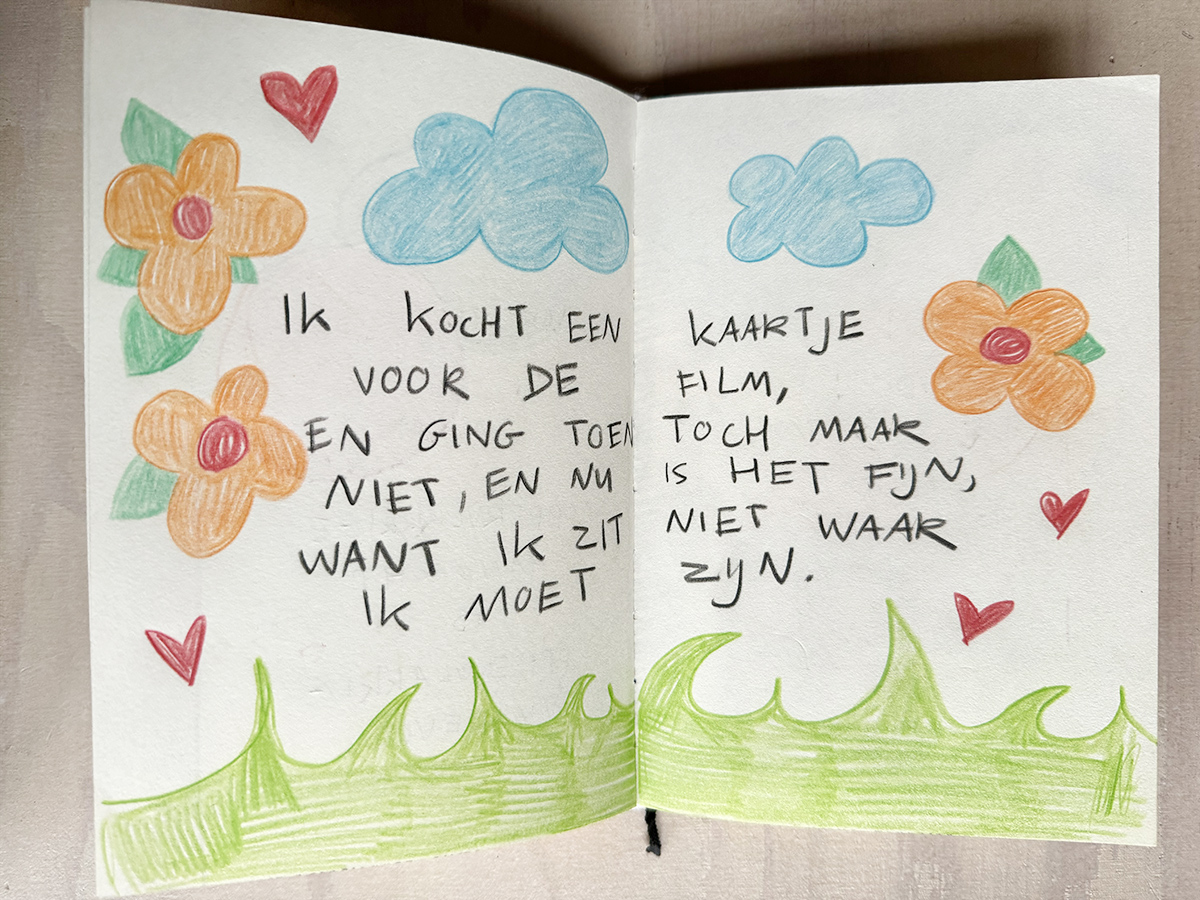 IK KOCHT EEN KAARTJE
VOOR DE FILM,
EN GING TOEN TOCH MAAR
NIET, EN NU IS HET FIJN,
WANT IK ZIT NIET WAAR
IK MOET ZIJN.